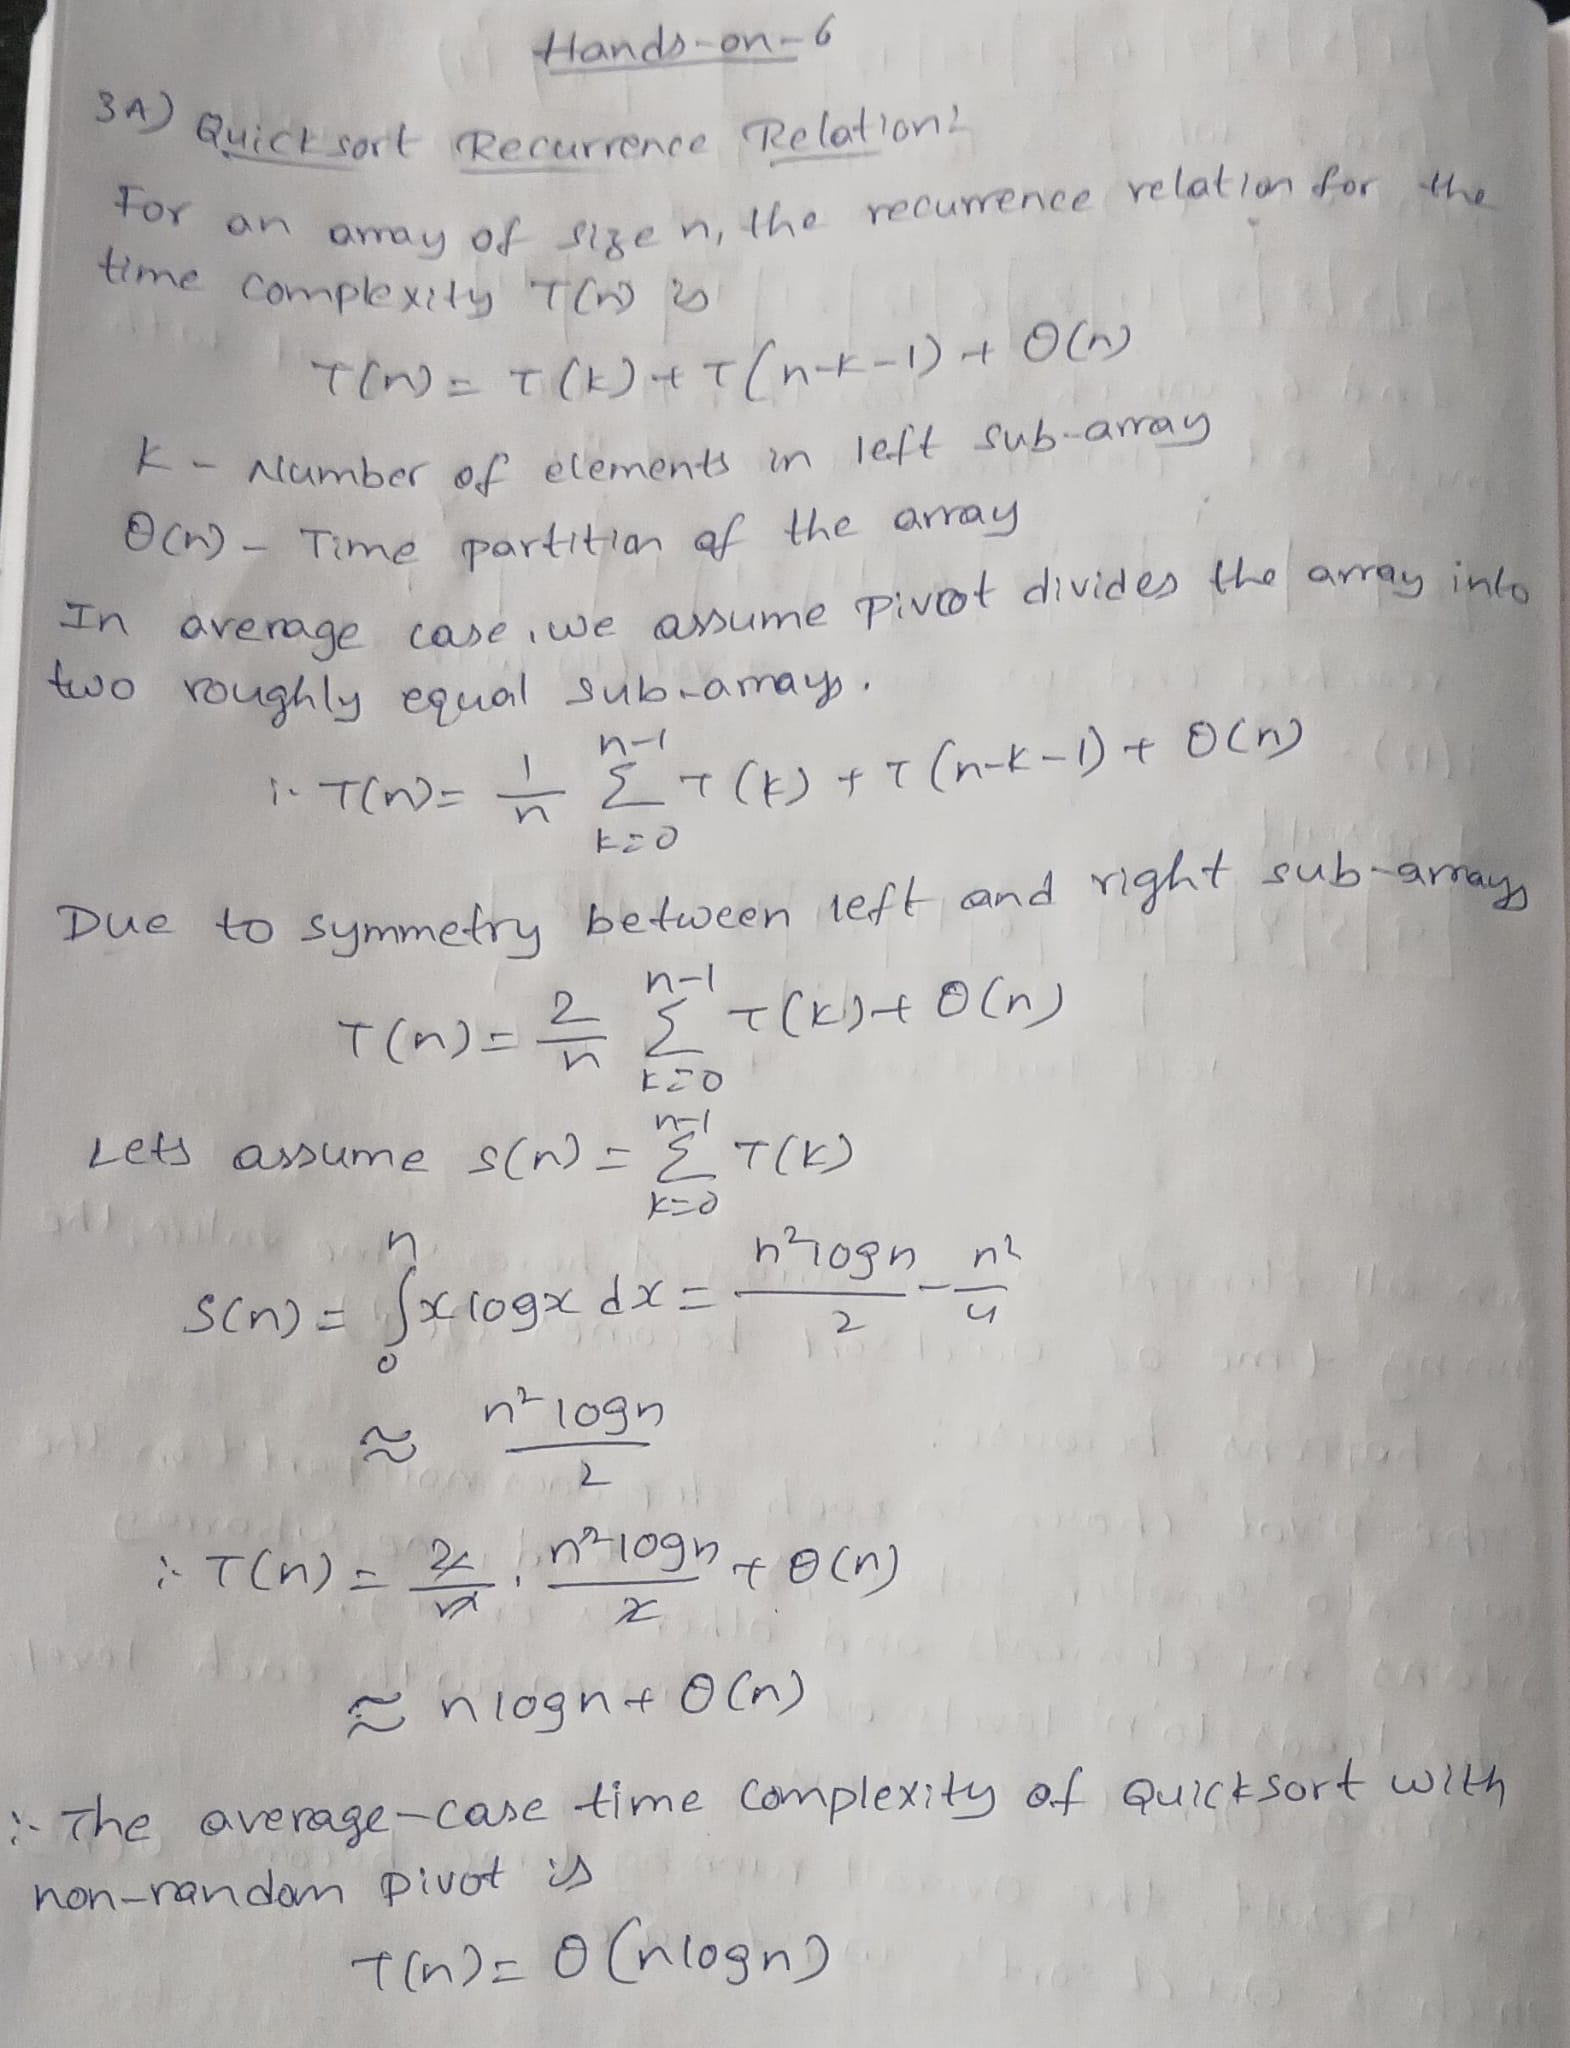 Hands-on-6
3A) Quicksort Recurrence Relation:
For an array of size n, the recurrence relation for the
time complexity T(n) is
T(n) = T(k) + T(n-k-1) + Θ(n)
k - Number of elements in left sub-array
Θ(n) - Time partition of the array
In average case, we assume pivot divides the array into
two roughly equal sub-arrays.
∴ T(n) = 1/n Σ_{k=0}^{n-1} T(k) + T(n-k-1) + Θ(n)
Due to symmetry between left and right sub-arrays
T(n) = 2/n Σ_{k=0}^{n-1} T(k) + Θ(n)
Lets assume s(n) = Σ_{k=0}^{n-1} T(k)
S(n) = ∫_0^n x log x dx = n² log n / 2 - n² / 4
≈ n² log n / 2
∴ T(n) = 2/n · n² log n / 2 + Θ(n)
≈ n log n + Θ(n)
∴ The average-case time complexity of Quicksort with
non-random pivot is
T(n) = Θ(n log n)